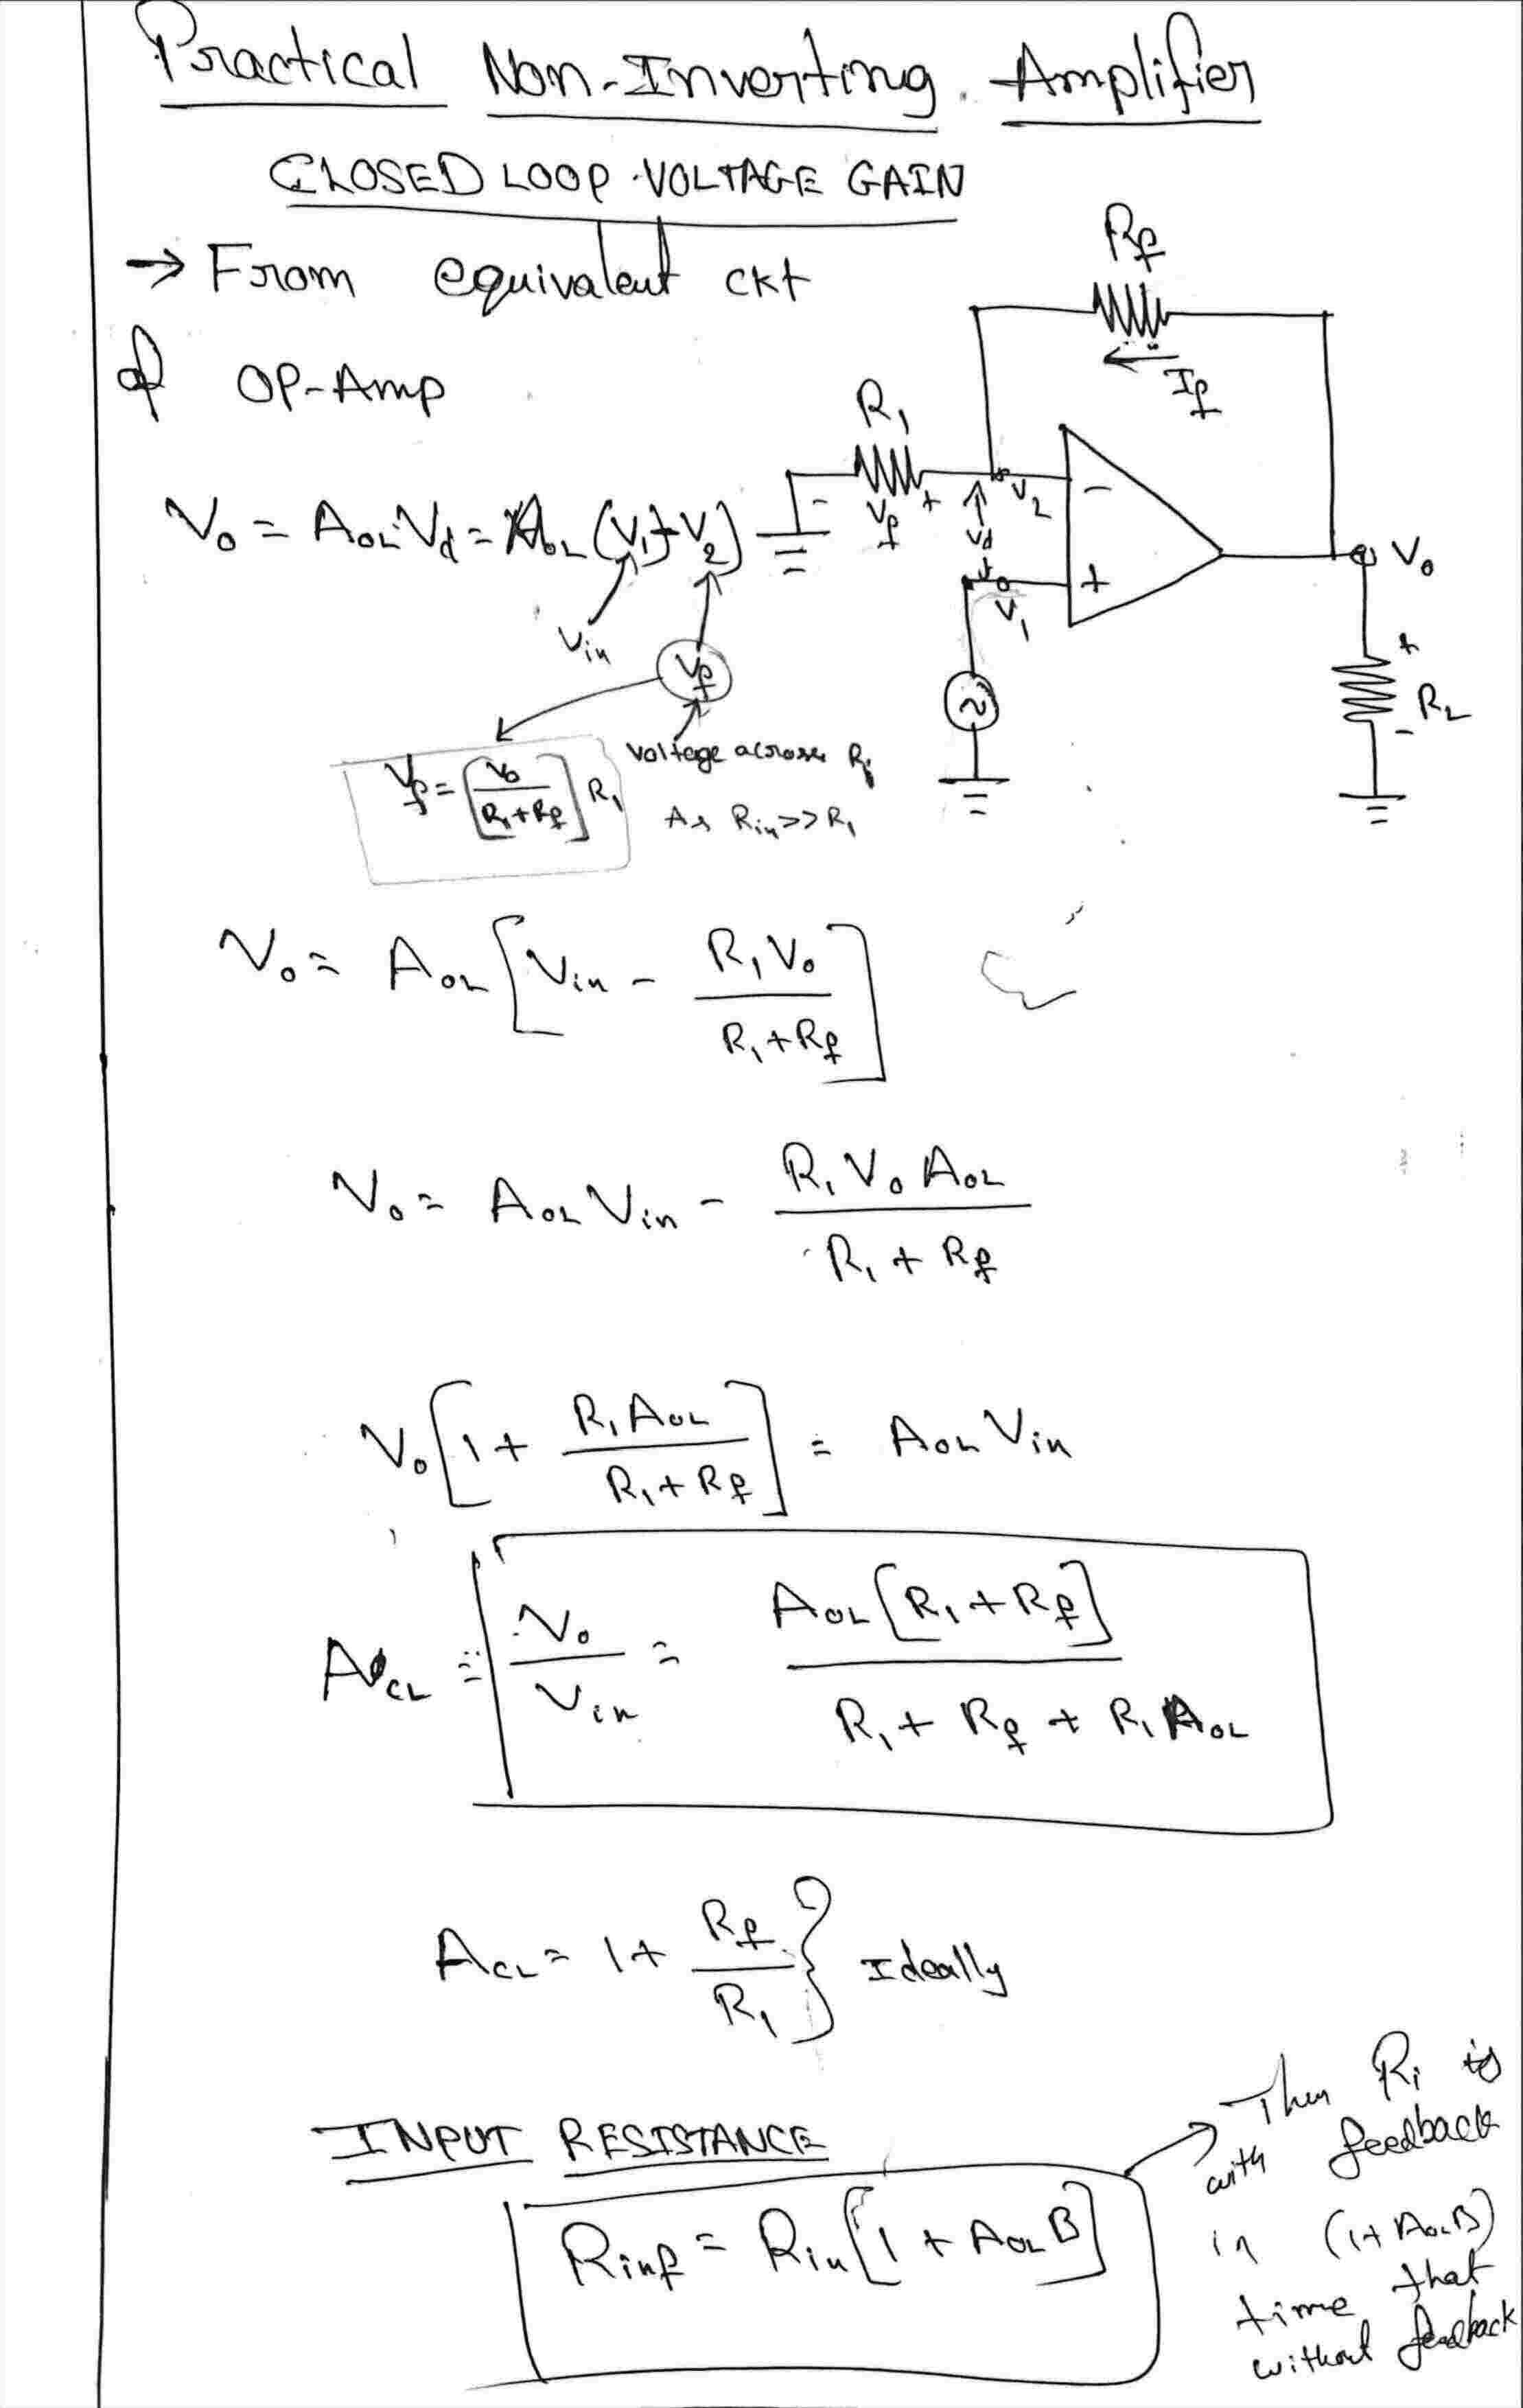 Practical Non-Inverting Amplifier
CLOSED LOOP VOLTAGE GAIN
→ From equivalent ckt
of OP-Amp
Rf
If
R1
- Vf +
V2
Vd
V1
-
+
Vo
+
RL
-
Vo = AOL Vd = AOL (V1 - V2)
Vin
Vf
Voltage across R1
As Rin >> R1
Vf = [Vo / R1 + Rf] R1
Vo = AOL [Vin - R1 Vo / R1 + Rf]
Vo = AOL Vin - R1 Vo AOL / R1 + Rf
Vo [1 + R1 AOL / R1 + Rf] = AOL Vin
ACL = Vo / Vin = AOL [R1 + Rf] / R1 + Rf + R1 AOL
ACL = 1 + Rf / R1 } Ideally
INPUT RESISTANCE
Rinf = Rin [1 + AOL B]
→ Then Ri is
with feedback
in (1 + AOL B)
time that
without feedback